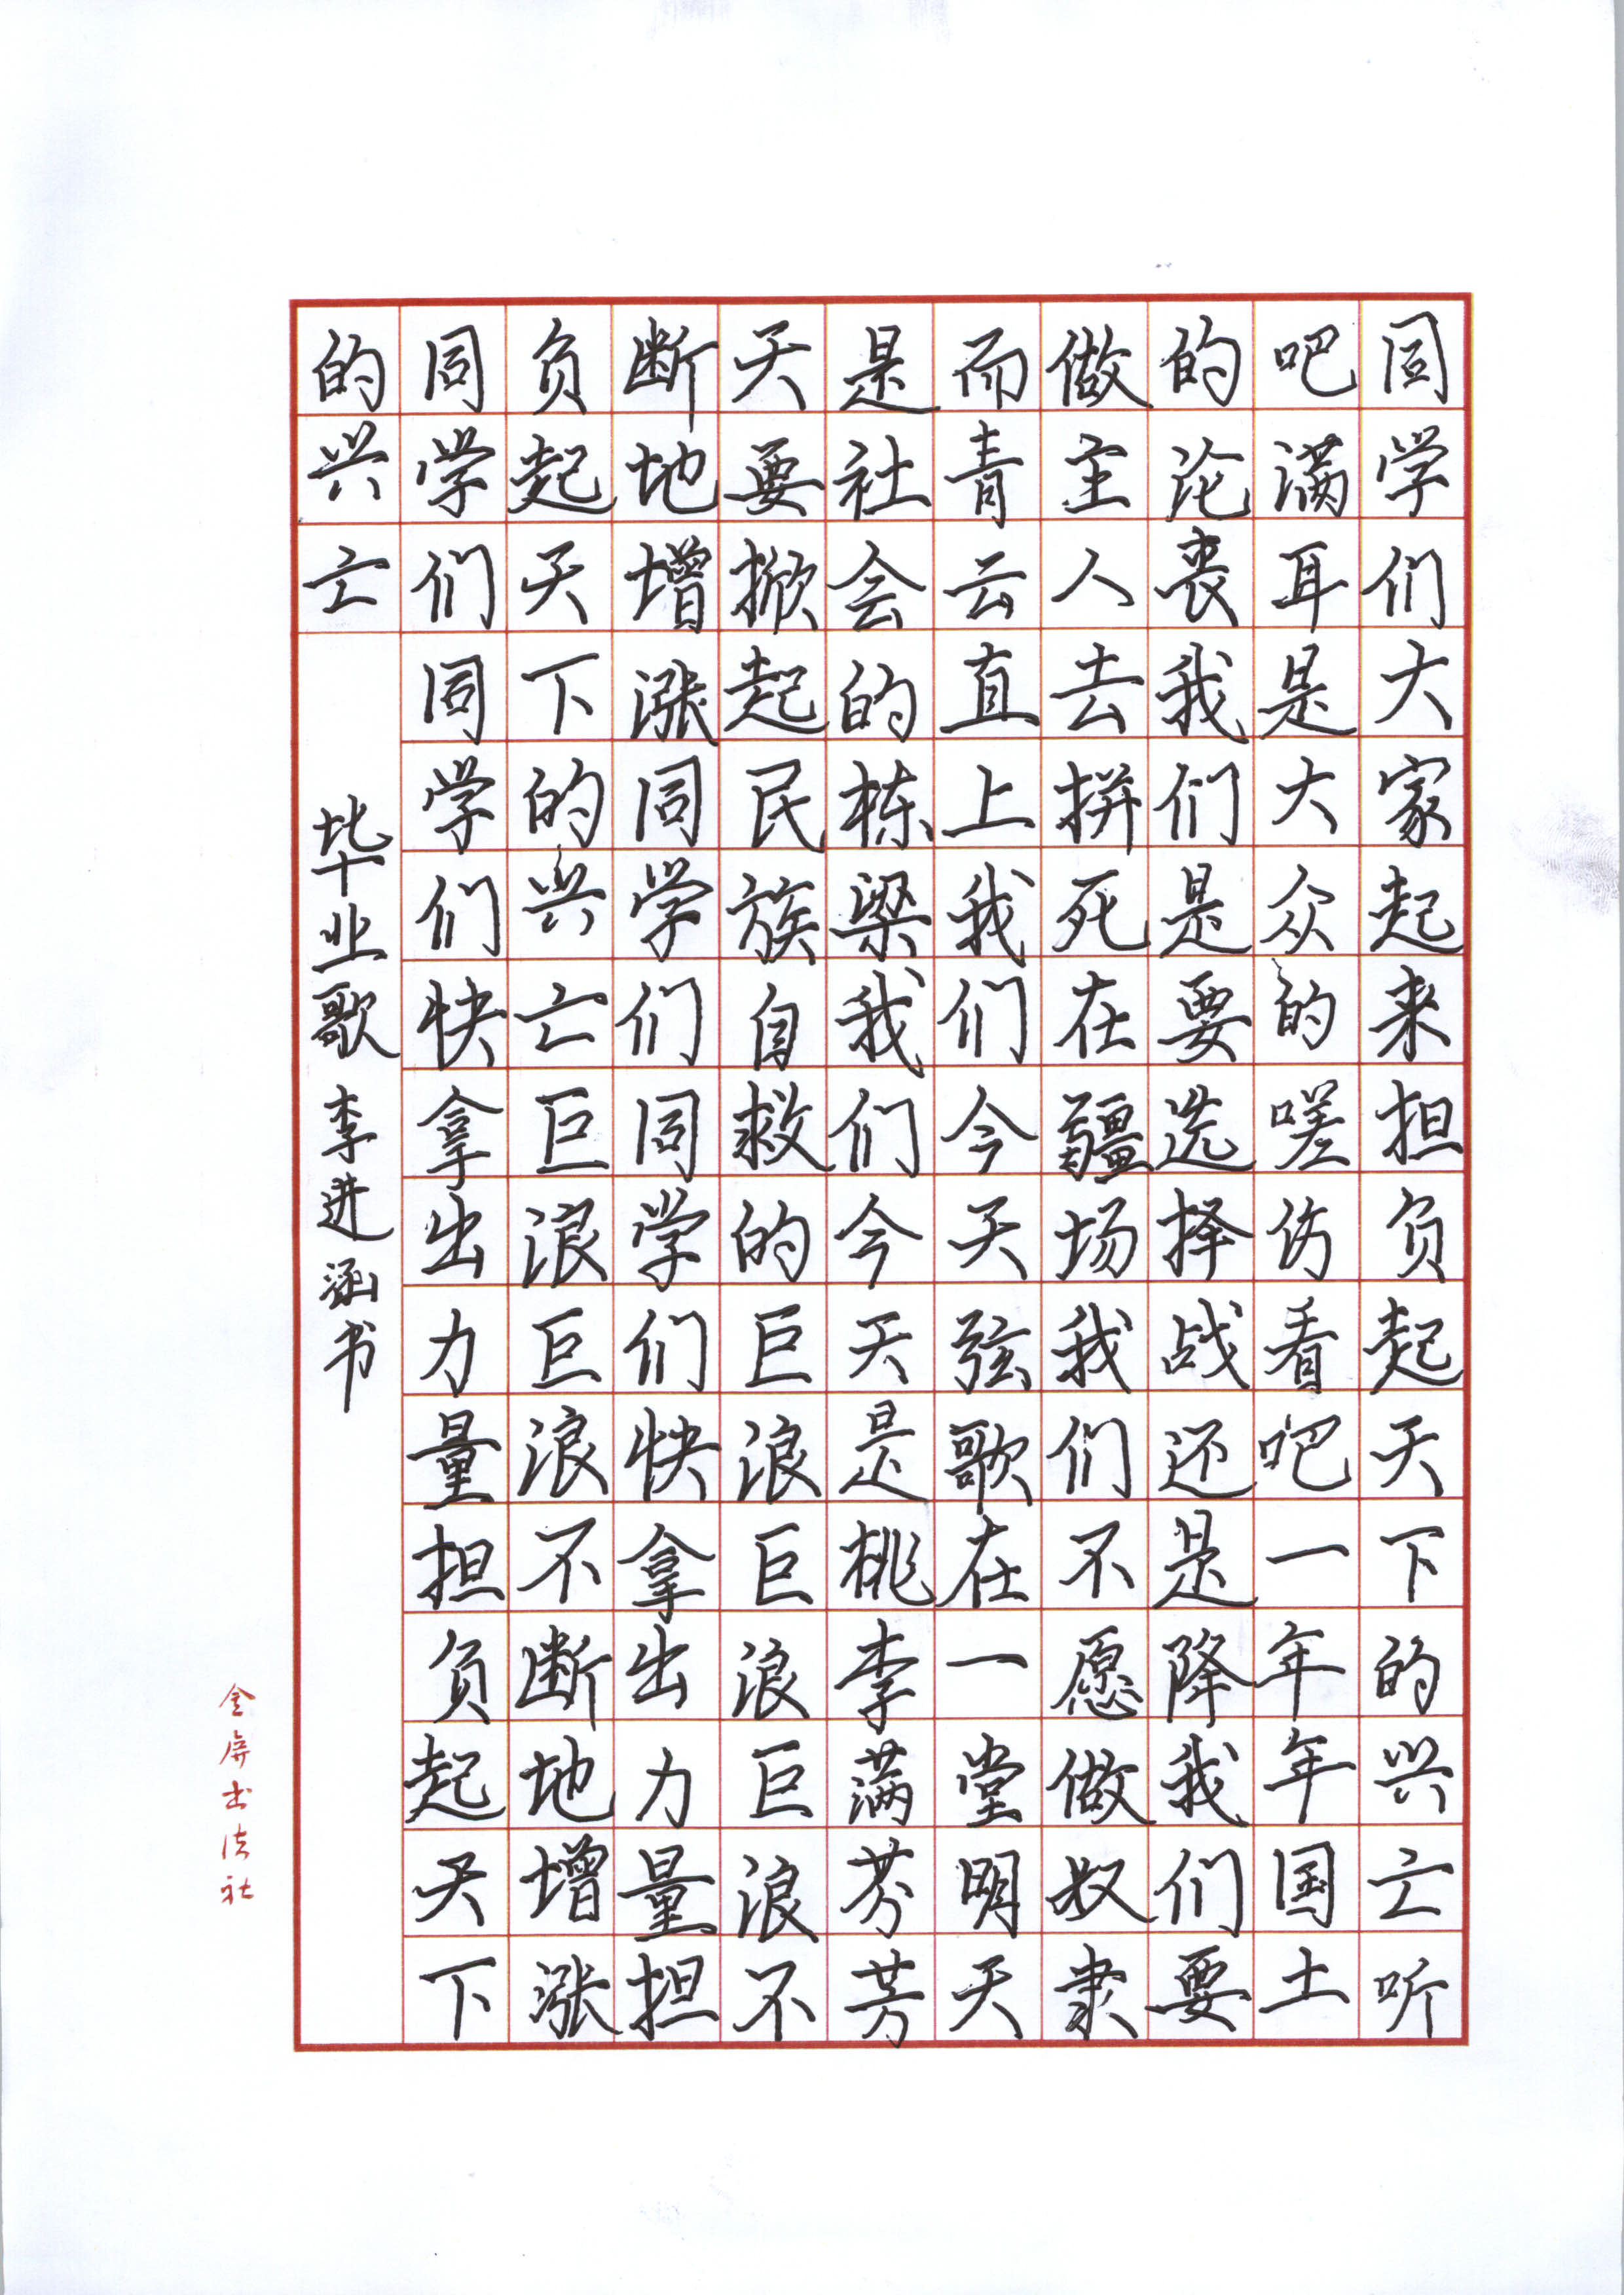 同学们大家起来担负起天下的兴亡听
吧满耳是大众的嗟伤看吧一年年国土
的沦丧我们是要选择战还是降我们要
做主人去拼死在疆场我们不愿做奴隶
而青云直上我们今天弦歌在一堂明天
是社会的栋梁我们今天是桃李满芬芳
天要掀起民族自救的巨浪巨浪巨浪不
断地增涨同学们同学们快拿出力量担
负起天下的兴亡巨浪巨浪不断地增涨
同学们同学们快拿出力量担负起天下
的兴亡
毕业歌 李进涵书
金屏出法社